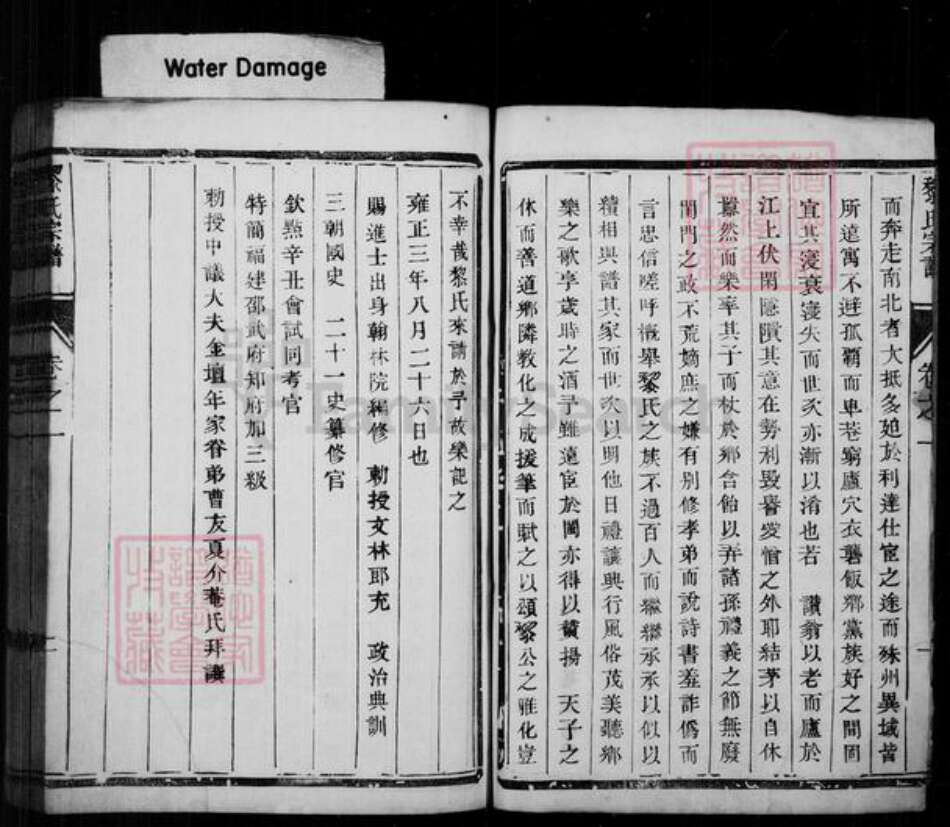 Water Damage
而奔走南北者大抵多廹於利達仕宦之途而殊州異域皆
所適寓不避孤霸而卑巷窮廬穴衣襲飯鄉黨族好之間固
宜其寖衰寖失而世次亦漸以淆也若 讚翁以老而廬於
江上伏閑隱隤其意在勢利毀譽愛憎之外耶結茅以自休
囂然而樂率其子而杖於鄉含飴以弄諸孫禮義之節無廢
閨門之政不荒嫡庶之嫌有別修孝弟而說詩書羞詐僞而
言忠信嗟呼慨舉黎氏之族不過百人而繼繼承承以似以
續相與譜其家而世次以明他日禮讓興行風俗茂美聽鄉
樂之歌享歲時之酒予雖遠宦於閩亦得以賛揚 天子之
休而善道鄉隣敎化之成援筆而賦之以頌黎公之雅化豈
不幸哉黎氏來請於予故樂記之
雍正三年八月二十六日也
賜進士出身翰林院編修 勅授文林郎充 政治典訓
三朝國史 二十一史纂修官
欽點辛丑會試同考官
特簡福建邵武府知府加三級
勅授中議大夫金壇年家眷弟曹友夏介菴氏拜譔
黎氏宗譜 卷之一
FamilySearch